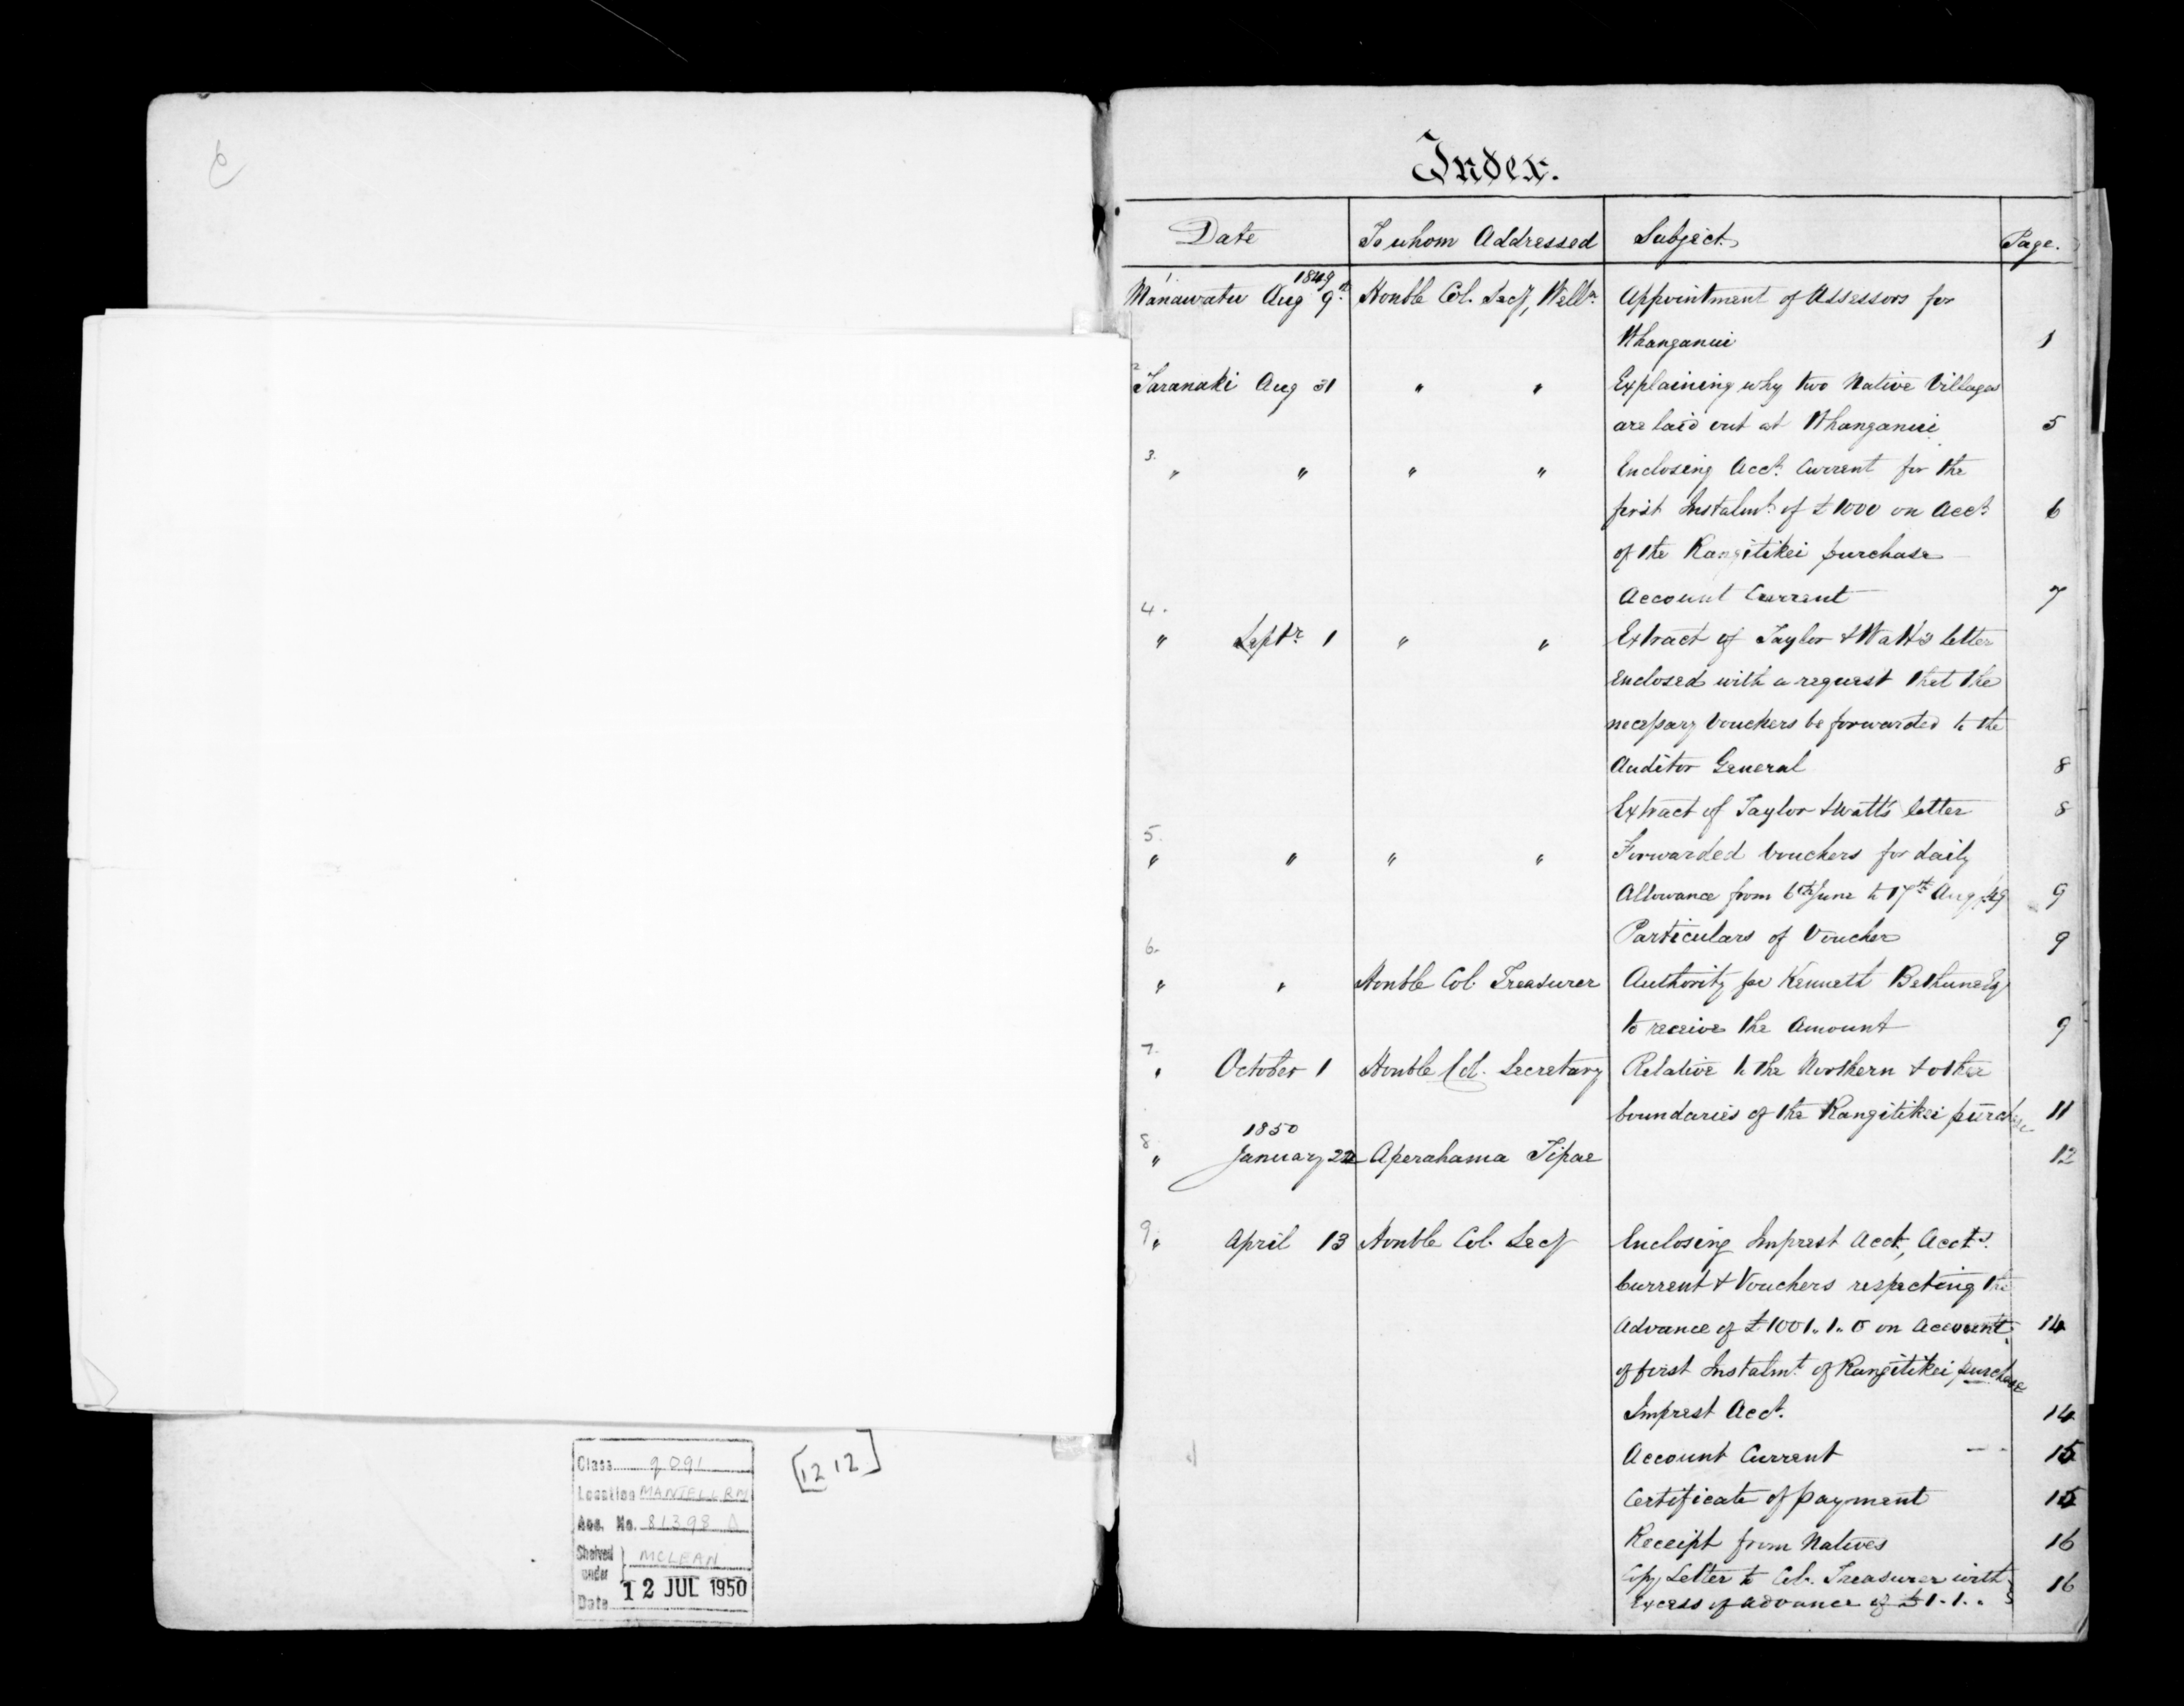 Class 9091
Location MANTELL RM
Acc. No. 81398 A
Shelved under } MCLEAN
Date 12 JUL 1950
[1212]
Index.
Date To whom Addressed Subject Page.
1. 1849
Manawatu Aug 9th Honble Col. Secy, Welln. Appointment of Assessors for
Whanganui 1
2 Taranaki Aug 31 " " Explaining why two Native Villages
are laid out at Whanganui 5
3. " " " " Enclosing Acct. Current for the
first Instalmt. of £1000 on Acct. 6
of the Rangitikei purchase
Account Current 7
4. " Septr 1 " " Extract of Taylor & Watt's letter
enclosed with a request that the
necessary vouchers be forwarded to the
Auditor General 8
Extract of Taylor & Watt's letter 8
5. " " " " Forwarded Vouchers for daily
Allowance from 6th June to 17th Aug /49 9
Particulars of Voucher 9
6. " " Honble Col. Treasurer Authority for Kenneth Bethune Esq
to receive the Amount 9
7. " October 1 Honble Col. Secretary Relative to the Northern & other
boundaries of the Rangitikei purchase 11
1850
8 " January 22 Aperahama Tipae 12
9. " April 13 Honble Col. Secy Enclosing Imprest Acct, Accts.
Current & Vouchers respecting the
Advance of £1001.. 1.. 0 on Account 14
of first Instalmt. of Rangitikei purchase
Imprest Acct. 14
Account Current 15
Certificate of payment 15
Receipt from Natives 16
Copy Letter to Col. Treasurer with
Excess of advance of £1.1.. 16